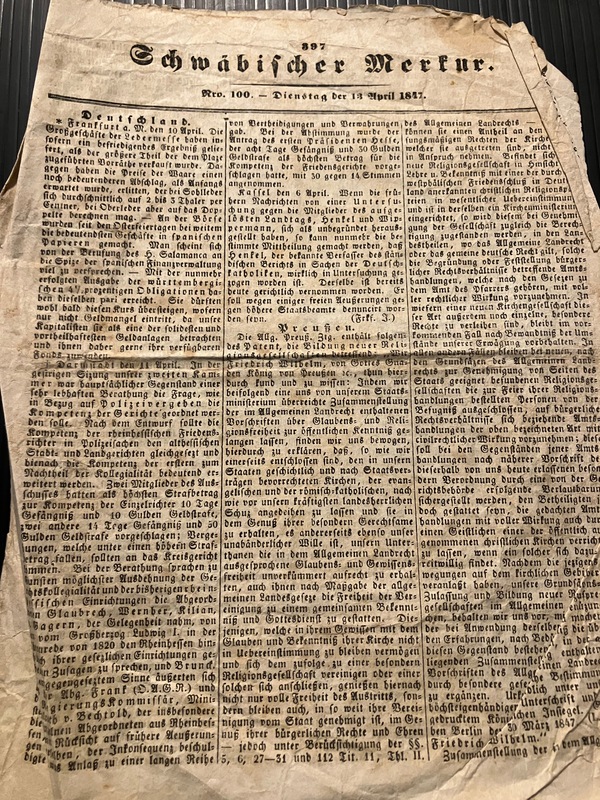 397
Schwäbischer Merkur.
Nro. 100. — Dienstag der 13 April 1847.
Deutschland.
* Frankfurt a. M. den 10 April. Die
Großgeschäfte der Ledermesse haben in-
sofern ein befriedigendes Ergebniß gelie-
fert, als der größere Theil der dem Plaze
zugeführten Vorräthe verkauft wurde. Da-
gegen haben die Preise der Waare einen
noch bedeutenderen Abschlag, als Anfangs
erwartet wurde, erlitten, der bei Sohlleder
sich durchschnittlich auf 2 bis 3 Thaler per
Centner, bei Oberleder aber auf das Dop-
pelte berechnen mag. — An der Börse
wurden seit den Osterfeiertagen bei weitem
die bedeutendsten Geschäfte in spanischen
Papieren gemacht. Man scheint sich
von der Berufung des H. Salamanca an
die Spize der spanischen Finanzverwaltung
viel zu versprechen. — Mit der nunmehr
erfolgten Ausgabe der württembergi-
schen 4½ prozentigen Obligationen ha-
ben dieselben pari erreicht. Sie dürften
wohl bald diesen Kurs übersteigen, wofern
nur nicht Geldmangel eintritt, da unsre
Kapitalisten sie als eine der solidesten und
vortheilhaftesten Geldanlagen betrachten
und ihnen daher gerne ihre verfügbaren
Fonds zuwenden.
Darmstadt den 11 April. In der
gestrigen Sizung unsrer zweiten Kam-
mer war hauptsächlicher Gegenstand einer
sehr lebhaften Berathung die Frage, wie
in Bezug auf Polizeivergehen die
Kompetenz der Gerichte geordnet wer-
den solle. Nach dem Entwurf sollte die
Kompetenz der rheinhessischen Friedens-
richter in Polizeisachen den althessischen
Stadt- und Landgerichten gleichgesezt und
hienach die Kompetenz der erstern zum
Nachtheil der Kollegialität bedeutend er-
weitert werden. Zwei Mitglieder des Aus-
schusses hatten als höchsten Strafbetrag
zur Kompetenz der Einzelrichter 10 Tage
Gefängniß und 10 Gulden Geldstrafe,
zwei andere 14 Tage Gefängniß und 50
Gulden Geldstrafe vorgeschlagen; Verge-
hungen, welche unter einen höhern Straf-
betrag fallen, sollten an das Kreisgericht
Bei der Berathung sprachen zu
unsten möglichster Ausdehnung der Ge-
htskollegialität und der bisherigen rhein-
ssischen Einrichtungen die Abgeord-
n Glaubrech, Wernher, Kilian,
agern, der Gelegenheit nahm, von
vom Großherzog Ludwig I. in der
nrede von 1820 den Rheinhessen hin-
ihrer gesezlichen Einrichtungen ge-
Zusagen zu sprechen, und Brunck.
gegengeseztem Sinne äußerten sich
Abg. Frank (D.A.G.R.) und
gierungskommissär, Mini-
v. Bechtold, der insbesondere
einen Abgeordneten aus Rheinhes-
Rücksicht auf frühere Aeußerun-
der Inkonsequenz beschul-
Anlaß zu einer langen Reihe
von Vertheidigungen und Verwahrungen
gab. Bei der Abstimmung wurde der
Antrag des ersten Präsidenten Hesse,
der acht Tage Gefängniß und 30 Gulden
Geldstrafe als höchsten Betrag für die
Kompetenz der Friedensrichter vorge-
schlagen hatte, mit 30 gegen 14 Stimmen
angenommen.
Kassel den 6 April. Wenn die frü-
hern Nachrichten von einer Untersu-
chung gegen die Mitglieder des aufge-
lösten Landtags, Henkel und Wip-
permann, sich als unbegründet heraus-
gestellt haben, so kann nunmehr die be-
stimmte Mittheilung gemacht werden, daß
Henkel, der bekannte Verfasser des stän-
dischen Berichts in Sachen der Deutsch-
katholiken, wirklich in Untersuchung ge-
zogen worden ist. Derselbe ist bereits
heute gerichtlich vernommen worden. Er
soll wegen einiger freien Aeußerungen ge-
gen höhere Staatsbeamte denuncirt wor-
den seyn. (Frkf. J.)
Preußen.
Die Allg. Preuß. Ztg. enthält folgen-
des Patent, die Bildung neuer Reli-
gionsgesellschaften betreffend: „Wir
Friedrich Wilhelm, von Gottes Gna-
den König von Preußen ꝛc., thun hier-
durch kund und zu wissen: Indem wir
beifolgend eine uns von unserem Staats-
ministerium überreichte Zusammenstellung
der im Allgemeinen Landrecht enthaltenen
Vorschriften über Glaubens- und Reli-
gionsfreiheit zur öffentlichen Kenntniß ge-
langen lassen, finden wir uns bewogen,
hierdurch zu erklären, daß, so wie wir
einerseits entschlossen sind, den in unseren
Staaten geschichtlich und nach Staatsver-
trägen bevorrechteten Kirchen, der evan-
gelischen und der römisch-katholischen, nach
wie vor unsern kräftigsten landesherrlichen
Schuz angedeihen zu lassen und sie in
dem Genuß ihrer besondern Gerechtsame
zu erhalten, es andererseits ebenso unser
unabänderlicher Wille ist, unsern Unter-
thanen die in dem Allgemeinen Landrecht
ausgesprochene Glaubens- und Gewissens-
freiheit unverkümmert aufrecht zu erhal-
ten, auch ihnen nach Maßgabe der allge-
meinen Landesgeseze die Freiheit der Ver-
einigung zu einem gemeinsamen Bekennt-
niß und Gottesdienst zu gestatten. Die-
jenigen, welche in ihrem Gewissen mit dem
Glauben und Bekenntniß ihrer Kirche nicht
in Uebereinstimmung zu bleiben vermögen
und sich dem zufolge zu einer besondern
Religionsgesellschaft vereinigen oder einer
solchen sich anschließen, genießen hiernach
nicht nur volle Freiheit des Austritts, son-
dern bleiben auch, in so weit ihre Vereini-
gung vom Staat genehmigt ist, im Ge-
nuß ihrer bürgerlichen Rechte und Ehren
— jedoch unter Berücksichtigung der §§.
5, 6, 27—31 und 112 Tit. 11, Thl. II.
des Allgemeinen Landrechts
können sie einen Antheil an den
sungsmäßigen Rechten der Kirche,
welche sie ausgetreten sind, nicht
in Anspruch nehmen. Befindet sich
neue Religionsgesellschaft in Hinsicht
Lehre u. Bekenntniß mit einer der durch
westphälischen Friedensschluß in Deut
land anerkannten christlichen Religionspar
teien in wesentlicher Uebereinstimmung
und ist in derselben ein Kirchenministerium
eingerichtet, so wird diesem bei Genehmi
gung der Gesellschaft zugleich die Berech
tigung zugestanden werden, in den Lan
destheilen, wo das Allgemeine Landrecht
oder das gemeine deutsche Recht gilt, solche
die Begründung oder Feststellung bürger-
licher Rechtsverhältnisse betreffende Amts-
handlungen, welche nach den Gesezen zu
dem Amt des Pfarrers gehören, mit vol-
ler rechtlicher Wirkung vorzunehmen. In
wiefern einer neuen Kirchengesellschaft die-
ser Art außerdem noch einzelne, besondere
Rechte zu verleihen sind, bleibt im vor-
kommenden Fall nach Bewandtniß der Um-
stände unserer Erwägung vorbehalten. In
allen andern Fällen bleibet bei neuen, nach
den Grundsäzen des Allgemeinen Land-
rechts zur Genehmigung von Seiten des
Staats geeignet befundenen Religions-
gesellschaften die zur Feier ihrer Religions-
handlungen bestellten Personen von der
Befugniß ausgeschlossen, auf bürgerliche
Rechtsverhältnisse sich beziehende Amts-
handlungen der oben bezeichneten Art mit
civilrechtlicher Wirkung vorzunehmen; diese
soll bei den Gegenständen jener Amts-
handlungen nach näherer Vorschrift der
dieserhalb von uns heute erlassenen beson
dern Verordnung durch eine von der Ge
richtsbehörde erfolgende Verlautbarung
sichergestellt werden, den Betheiligten j
doch gestattet seyn, die gedachten Amts
handlungen mit voller Wirkung auch dur
einen Geistlichen einer der öffentlich au
genommenen christlichen Kirchen verricht
zu lassen, wenn ein solcher sich dazu
reitwillig findet. Nachdem die jezigen
wegungen auf dem kirchlichen Gebiet
veranlaßt haben, unsere Grundsäze
Zulassung und Bildung neuer Religions
gesellschaften im Allgemeinen kund
chen, behalten wir uns vor,
der bei Anwendung derselben zu
den Erfahrungen, nach Bed
sen Gegenstand bestehenden
liegenden Zusammenstellung
Vorschriften des Allg. Landre
durch besondere gese
zu ergänzen. Unterschrift
gedrucktem Königlichen Insiegel.
ben Berlin den 30 März 1847
Friedrich Wilhelm."
Zusammenstellung der in dem Allgem